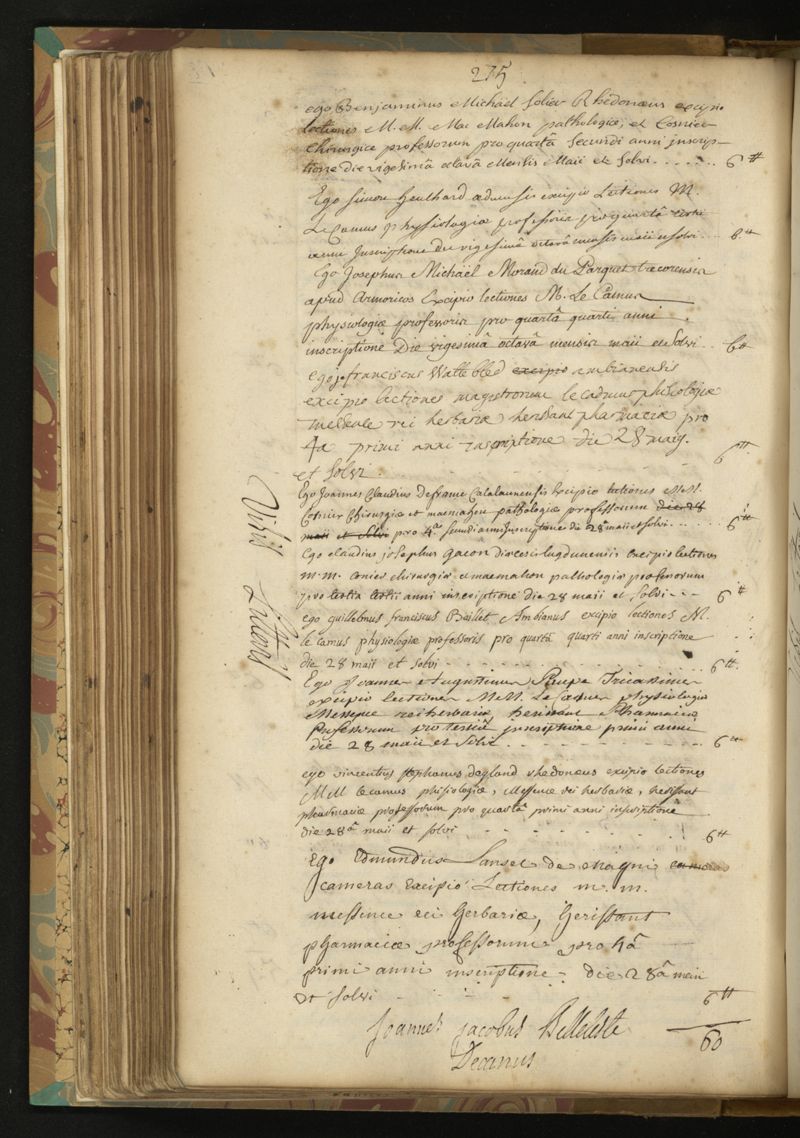 275
ego Benjaminus Michaël Solier Rhedonæus excipio
lectiones M. M. Mac Mahon pathologiæ, et Cosnier
Chirurgiæ professorum pro quartâ secundi anni inscrip-
tione die vigesimâ octavâ Mensis Maii et solvi . . . . . . 6 ᵗᵗ
Ego Simon heulhard excipio Lectiones M.
Le Camus physiologiæ professoris pro quartâ
anni Inscriptione die vigesimâ octavâ mensis maii et solvi . . . 6 ᵗᵗ
Ego Josephus Michaël Morand du Parquet trecorensis
apud Armoricos Excipio lectiones M. Le Camus
physiologiæ professoris pro quartâ quarti anni
inscriptione Die vigesimâ octavâ mensis maii et solvi . . 6 ᵗᵗ
ego j. franciscus Watebled excipio ambianensis
excipio lectiones magistrorum le camus phisiologiæ
rei herbariæ herissant pharmaciæ pro
4a primi anni inscriptione die 28 maij.
et solvi . . . 6 ᵗᵗ
Visis Litteris
Ego Joannes Claudius Defrane Catalaunensis Excipio lectiones MM.
Cosnier Chirurgiæ et macmahon pathologiæ professorum die 28
maii et solvi pro 4ᵃ secundi anni Inscriptione die 28ᵃ maii et solvi . . . . . 6 ᵗᵗ
Ego claudius josephus gacon diœcesis lugdunensis excipio lectiones
m. m. cosnier chirurgiæ et macmahon pathologiæ professorum
pro tertia tertii anni inscriptione die 28 maii et solvi - - - 6 ᵗᵗ
ego guillelmus franciscus Baillet Ambianus excipio lectiones M.
le camus physiologiæ professoris pro quartâ quarti anni inscriptione
die 28 maii et solvi - . . . . . . 6 ᵗᵗ
Ego Joannes Augustinus Tricassinus
excipio lectiones MM. Le Camus physiologiæ
Messence rei herbariæ herissant Pharmaciæ
Professorum pro tertiâ inscriptione primi anni
die 28 maii et solvi . . . . . . 6 ᵗᵗ
ego vincentius stephanus degland rhedoneus excipio lectiones
MM lecamus phisiologiæ, Messence rei herbariæ, herissant
pharmaciæ professorum pro quartâ primi anni inscriptione
die 28ᵃ maii et solvi . . . . . . 6 ᵗᵗ
Ego Edmundus Sansel de magni
cameras Excipio Lectiones m. m.
messence rei herbariæ, herissant
pharmaciæ professorum pro 4ᵃ
primi anni inscriptione die 28ᵃ maii
et solvi . . . 6 ᵗᵗ
60
Joannes jacobus Belleteste
Decanus